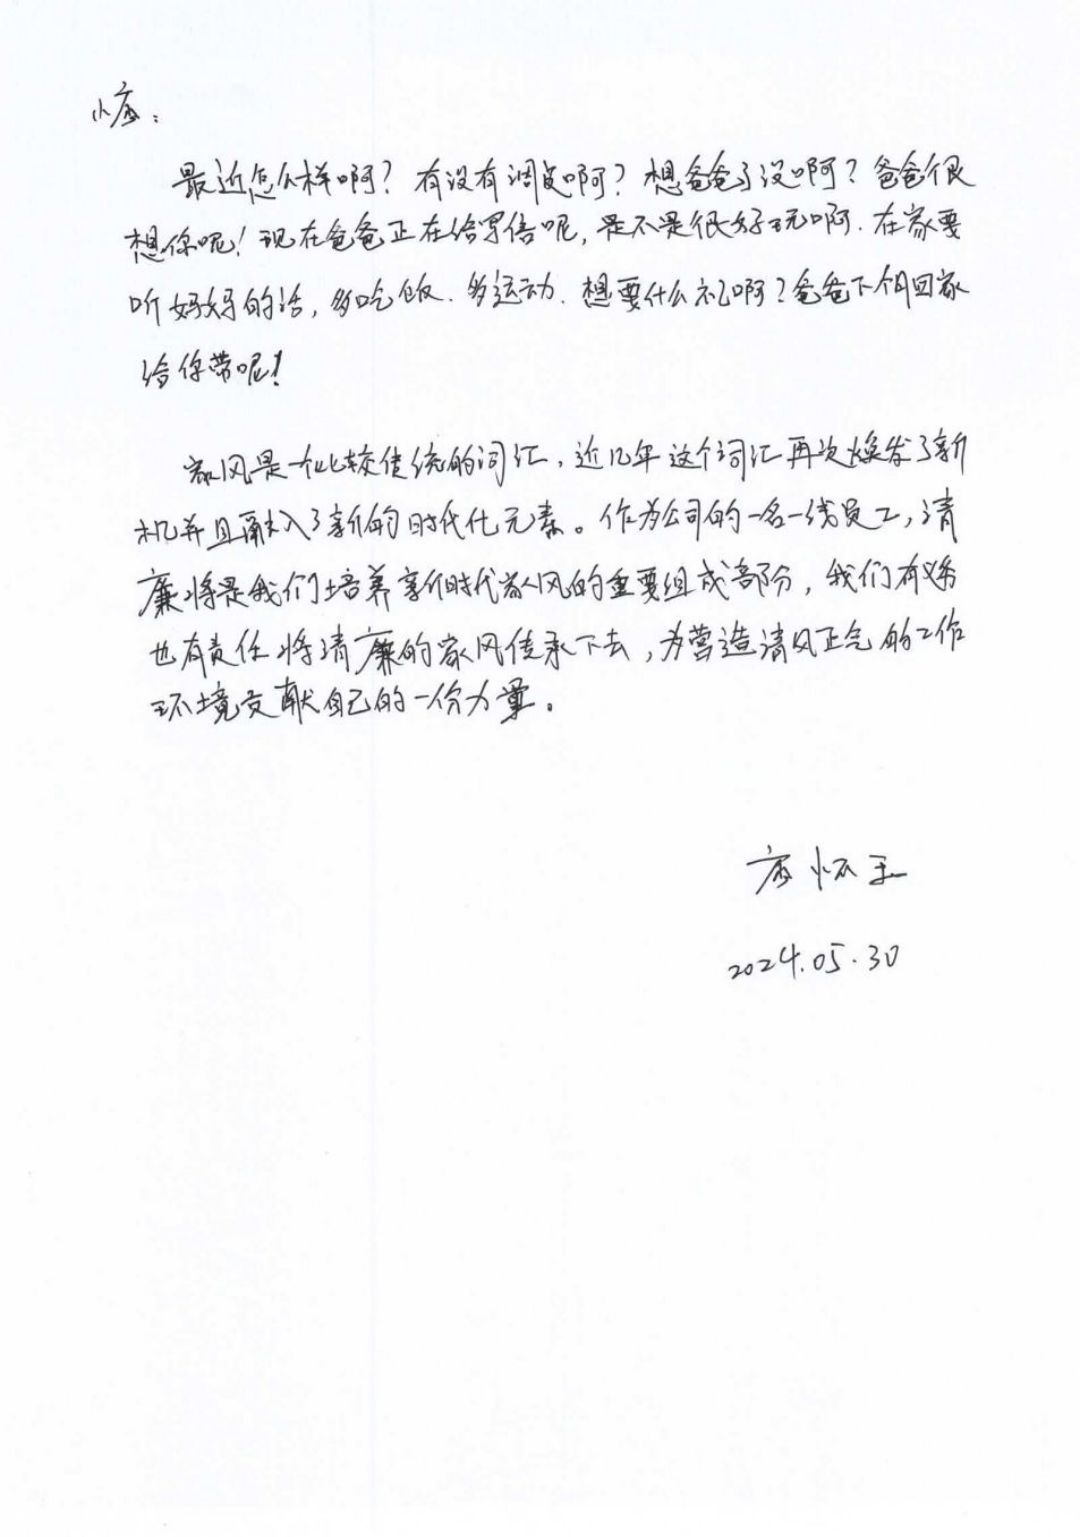 最近怎么样啊？有没有调皮啊？想爸爸了没啊？爸爸很
想你呢！现在爸爸正在给写信呢，是不是很好玩啊．在家要
听妈妈的话，多吃饭．多运动．想要什么礼啊？爸爸下个月回家
给你带呢！
家风是一个比较传统的词汇，近几年这个词汇再次焕发了新
机并且融入了新的时代化元素。作为公司的一名一线员工，清
廉将是我们培养新时代家风的重要组成部分，我们有义务
也有责任将清廉的家风传承下去，为营造清风正气的工作
环境贡献自己的一份力量。
怀玉
2024.05.30